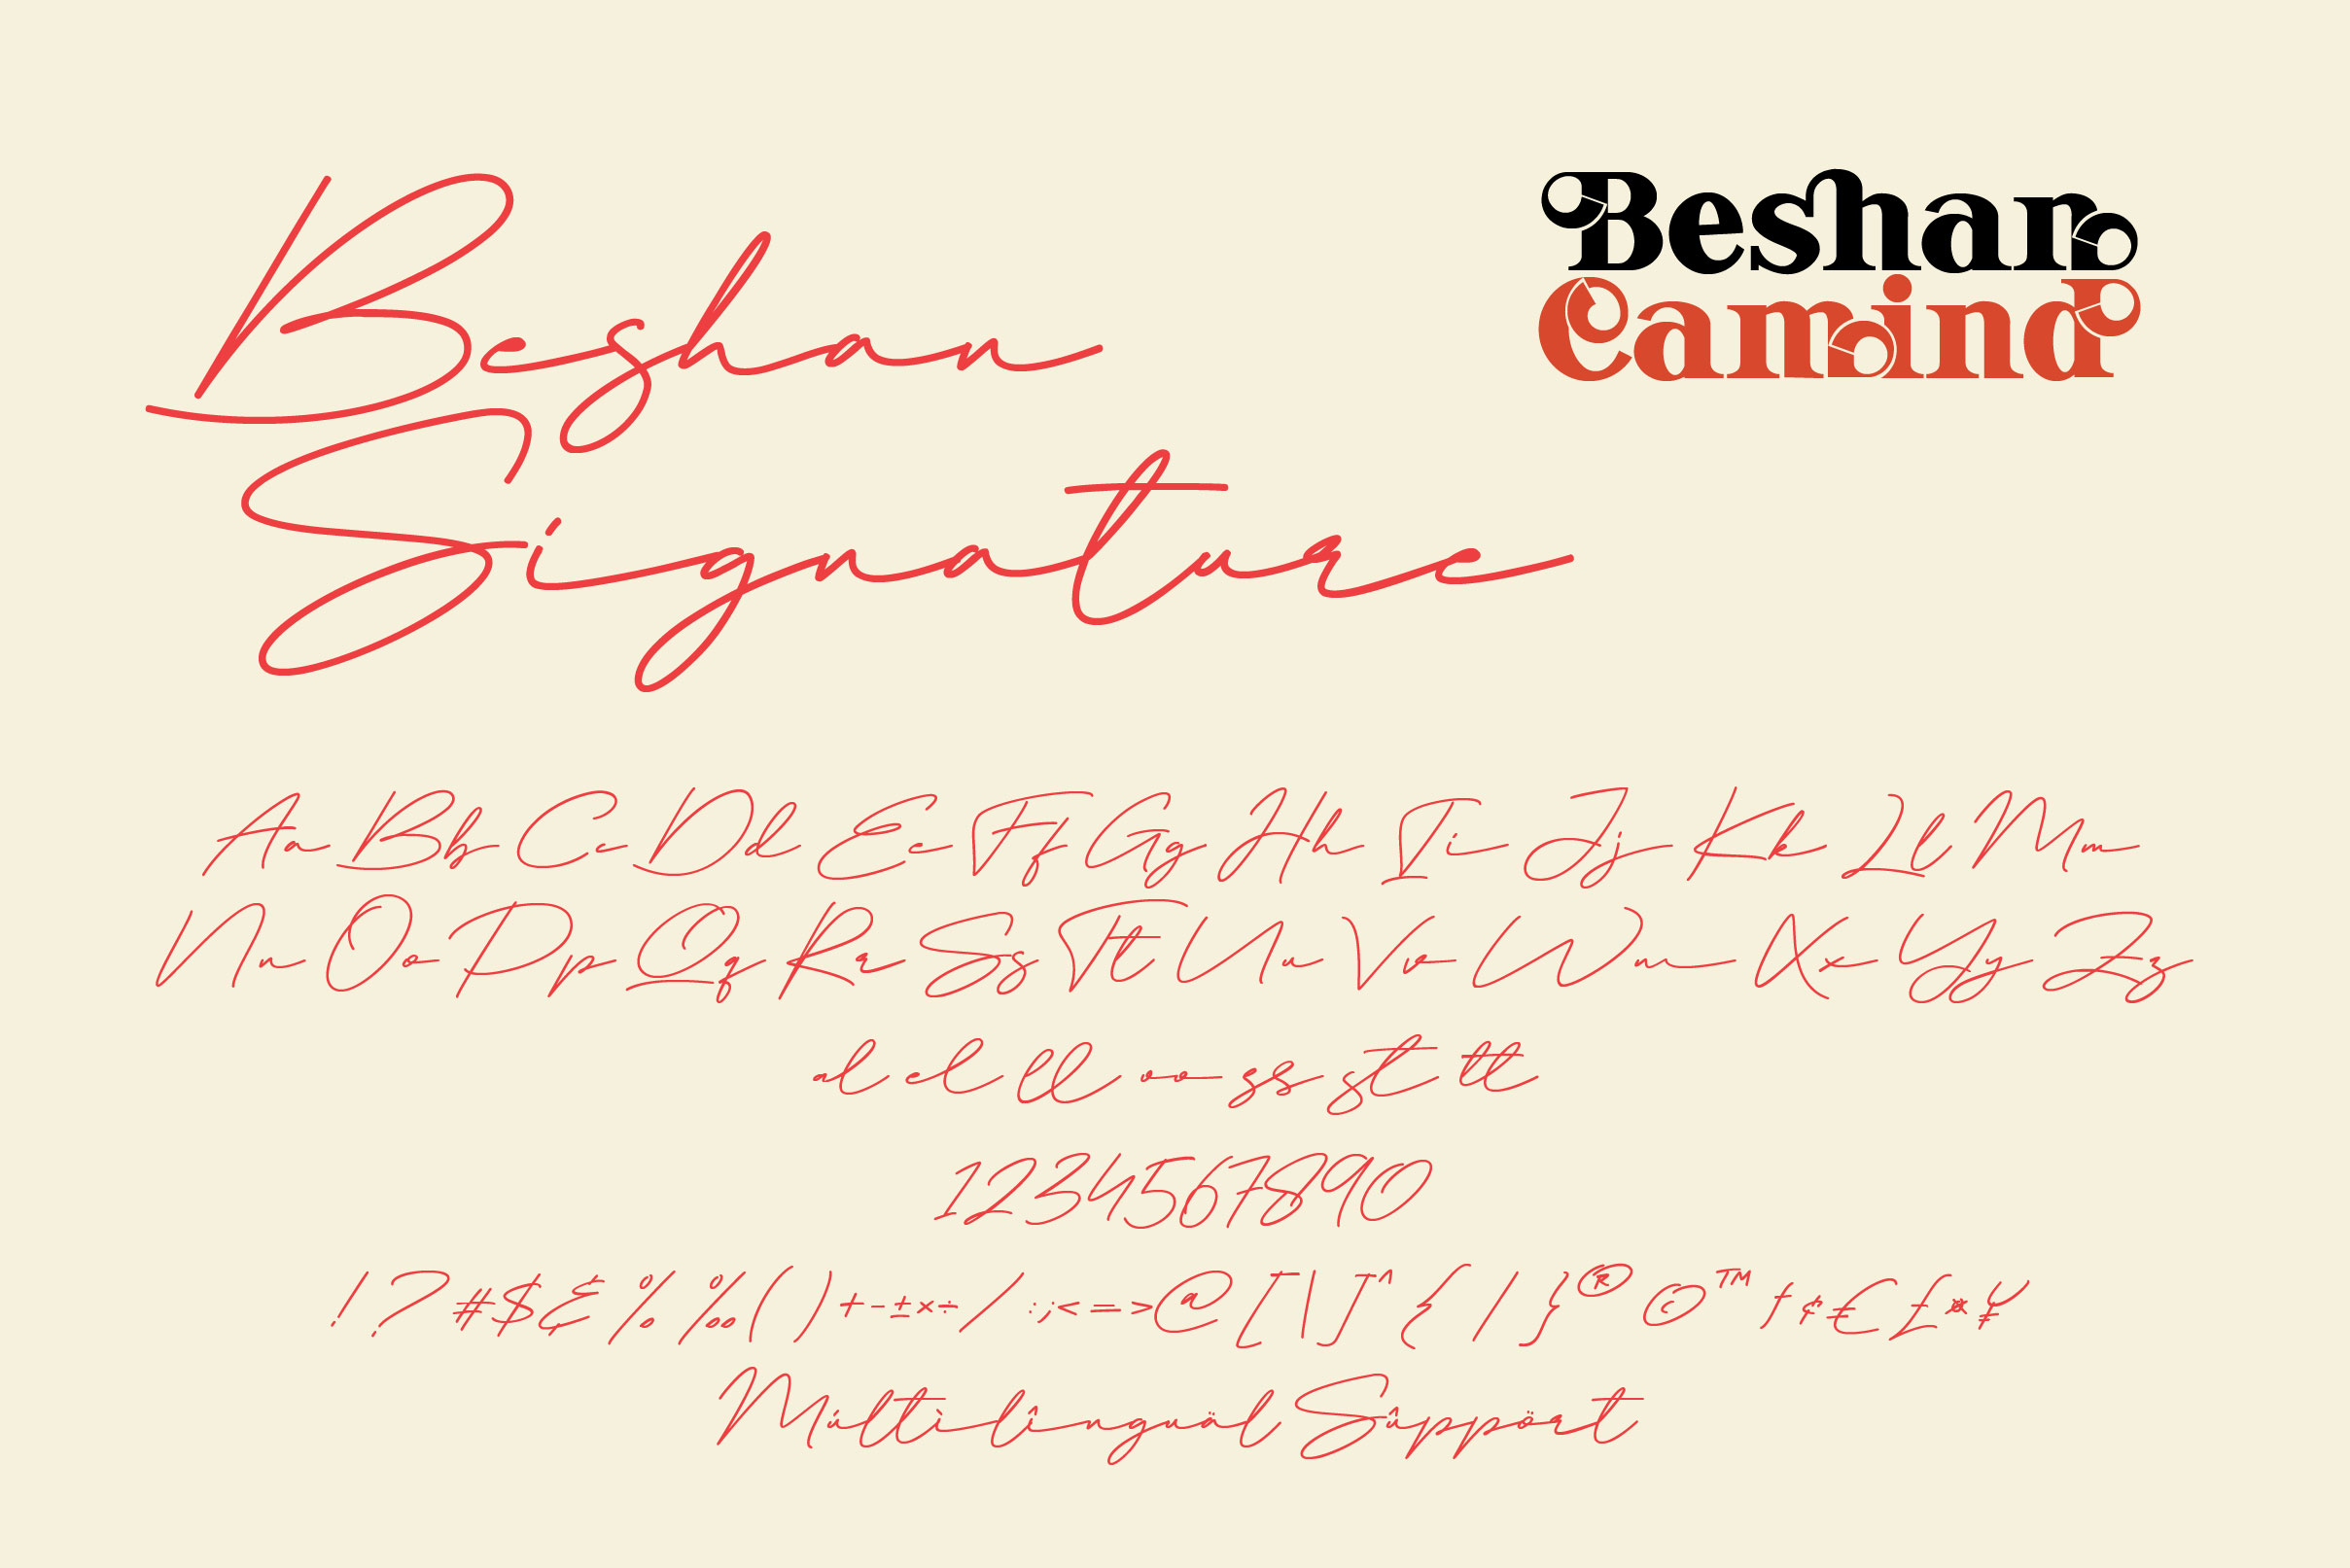 Beshan
Signature
Beshan
Camind
Aa Bb Cc Dd Ee Ff Gg Hh Ii Jj Kk Ll Mm
Nn Oo Pp Qq Rr Ss Tt Uu Vv Ww Xx Yy Zz
al el ll oo ss st tt
1234567890
!?#$&%‰()+-±×÷/:;<=>@[|\]^{|}®©™ƒ¢€£¤¥
Múltìlîngüäl Sûppört